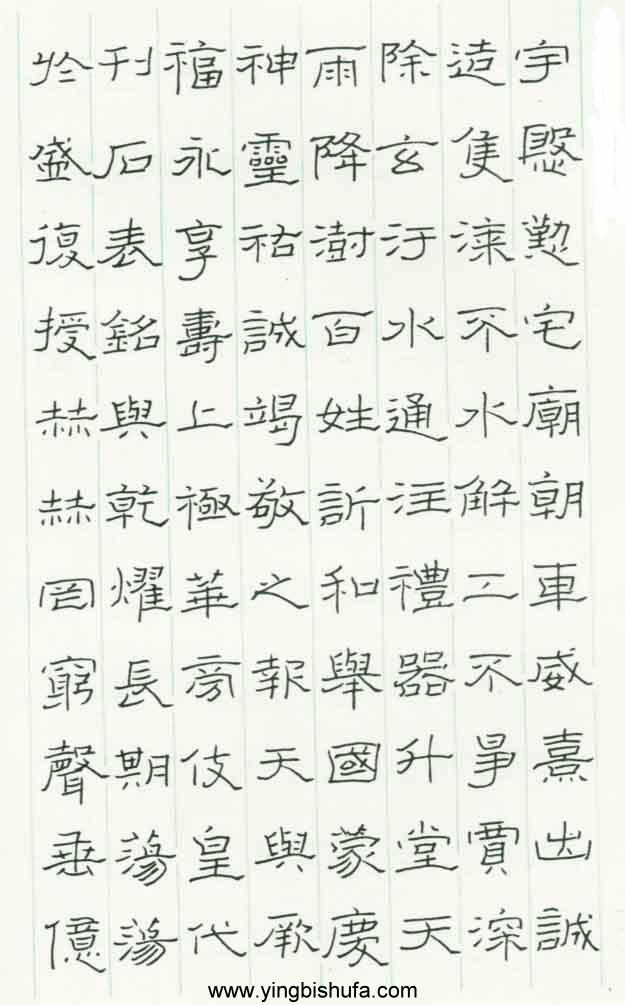 宇慇懃宅廟朝車威熹出誠
造隻漆不水解工不爭賈深
除玄汙水通注禮器升堂天
雨降澍百姓訢和舉國蒙慶
神靈祐誠竭敬之報天與厥
福永享壽上極華旁伎皇代
刊石表銘與乾燿長期蕩蕩
於盛復授赫赫罔窮聲垂億
www.yingbishufa.com